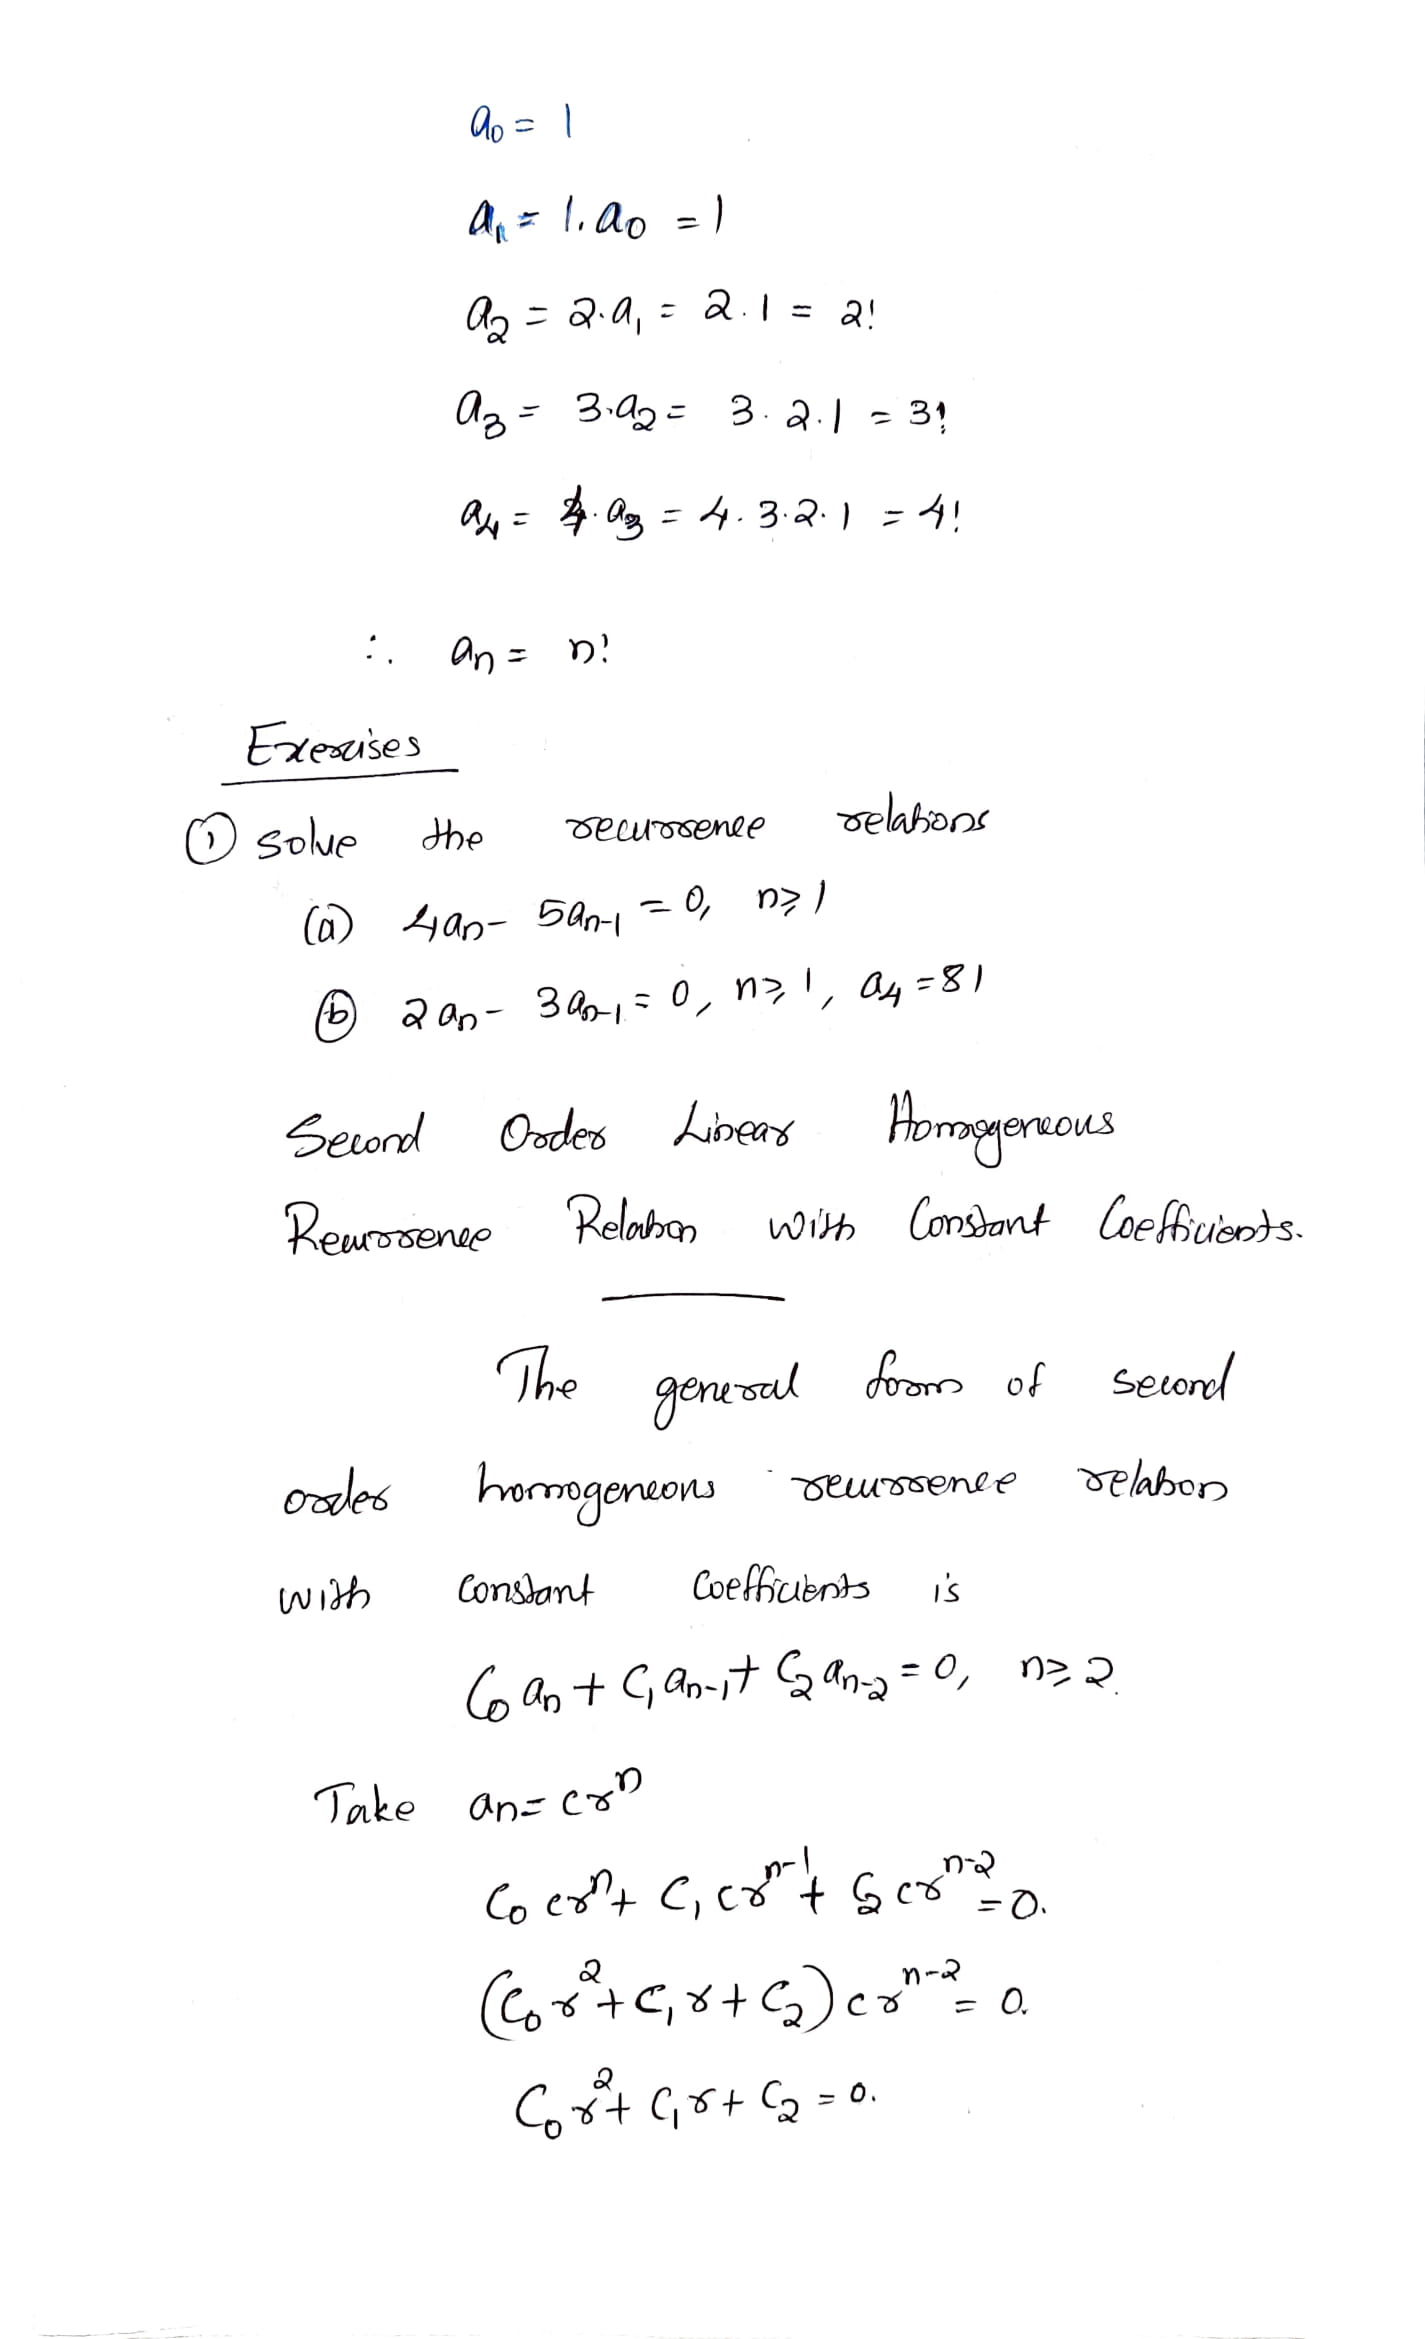 a0 = 1
a1 = 1. a0 = 1
a2 = 2.a1 = 2.1 = 2!
a3 = 3.a2 = 3. 2.1 = 3!
a4 = 4. a3 = 4. 3.2.1 = 4!
∴ an = n!
Exercises
① solve the recurrence relations
(a) 4an - 5an-1 = 0, n≥1
ⓑ 2an - 3an-1 = 0, n≥1, a4 = 81
Second Order Linear Homogeneous
Recurrence Relation with Constant Coefficients.
The general form of second
order homogeneous recurrence relation
with constant coefficients is
C0 an + C1 an-1 + C2 an-2 = 0, n≥2.
Take an = cr^n
C0 cr^n + C1 cr^n-1 + C2 cr^n-2 = 0.
(C0 r^2 + C1 r + C2) cr^n-2 = 0.
C0 r^2 + C1 r + C2 = 0.